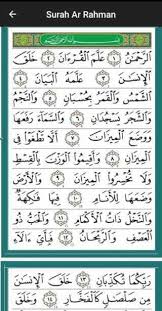 Surah Ar Rahman
بِسْمِ اللَّهِ الرَّحْمَٰنِ الرَّحِيمِ
الرَّحْمَٰنُ ١ عَلَّمَ الْقُرْءَانَ ٢ خَلَقَ
الْإِنسَٰنَ ٣ عَلَّمَهُ الْبَيَانَ ٤
الشَّمْسُ وَالْقَمَرُ بِحُسْبَانٍ ٥ وَالنَّجْمُ
وَالشَّجَرُ يَسْجُدَانِ ٦ وَالسَّمَاءَ رَفَعَهَا
وَوَضَعَ الْمِيزَانَ ٧ أَلَّا تَطْغَوْا فِي
الْمِيزَانِ ٨ وَأَقِيمُوا الْوَزْنَ بِالْقِسْطِ
وَلَا تُخْسِرُوا الْمِيزَانَ ٩ وَالْأَرْضَ
وَضَعَهَا لِلْأَنَامِ ١٠ فِيهَا فَٰكِهَةٌ
وَالنَّخْلُ ذَاتُ الْأَكْمَامِ ١١ وَالْحَبُّ ذُو
الْعَصْفِ وَالرَّيْحَانُ ١٢ فَبِأَيِّ ءَالَاءِ
رَبِّكُمَا تُكَذِّبَانِ ١٣ خَلَقَ الْإِنسَٰنَ
مِن صَلْصَٰلٍ كَالْفَخَّارِ ١٤ وَخَلَقَ